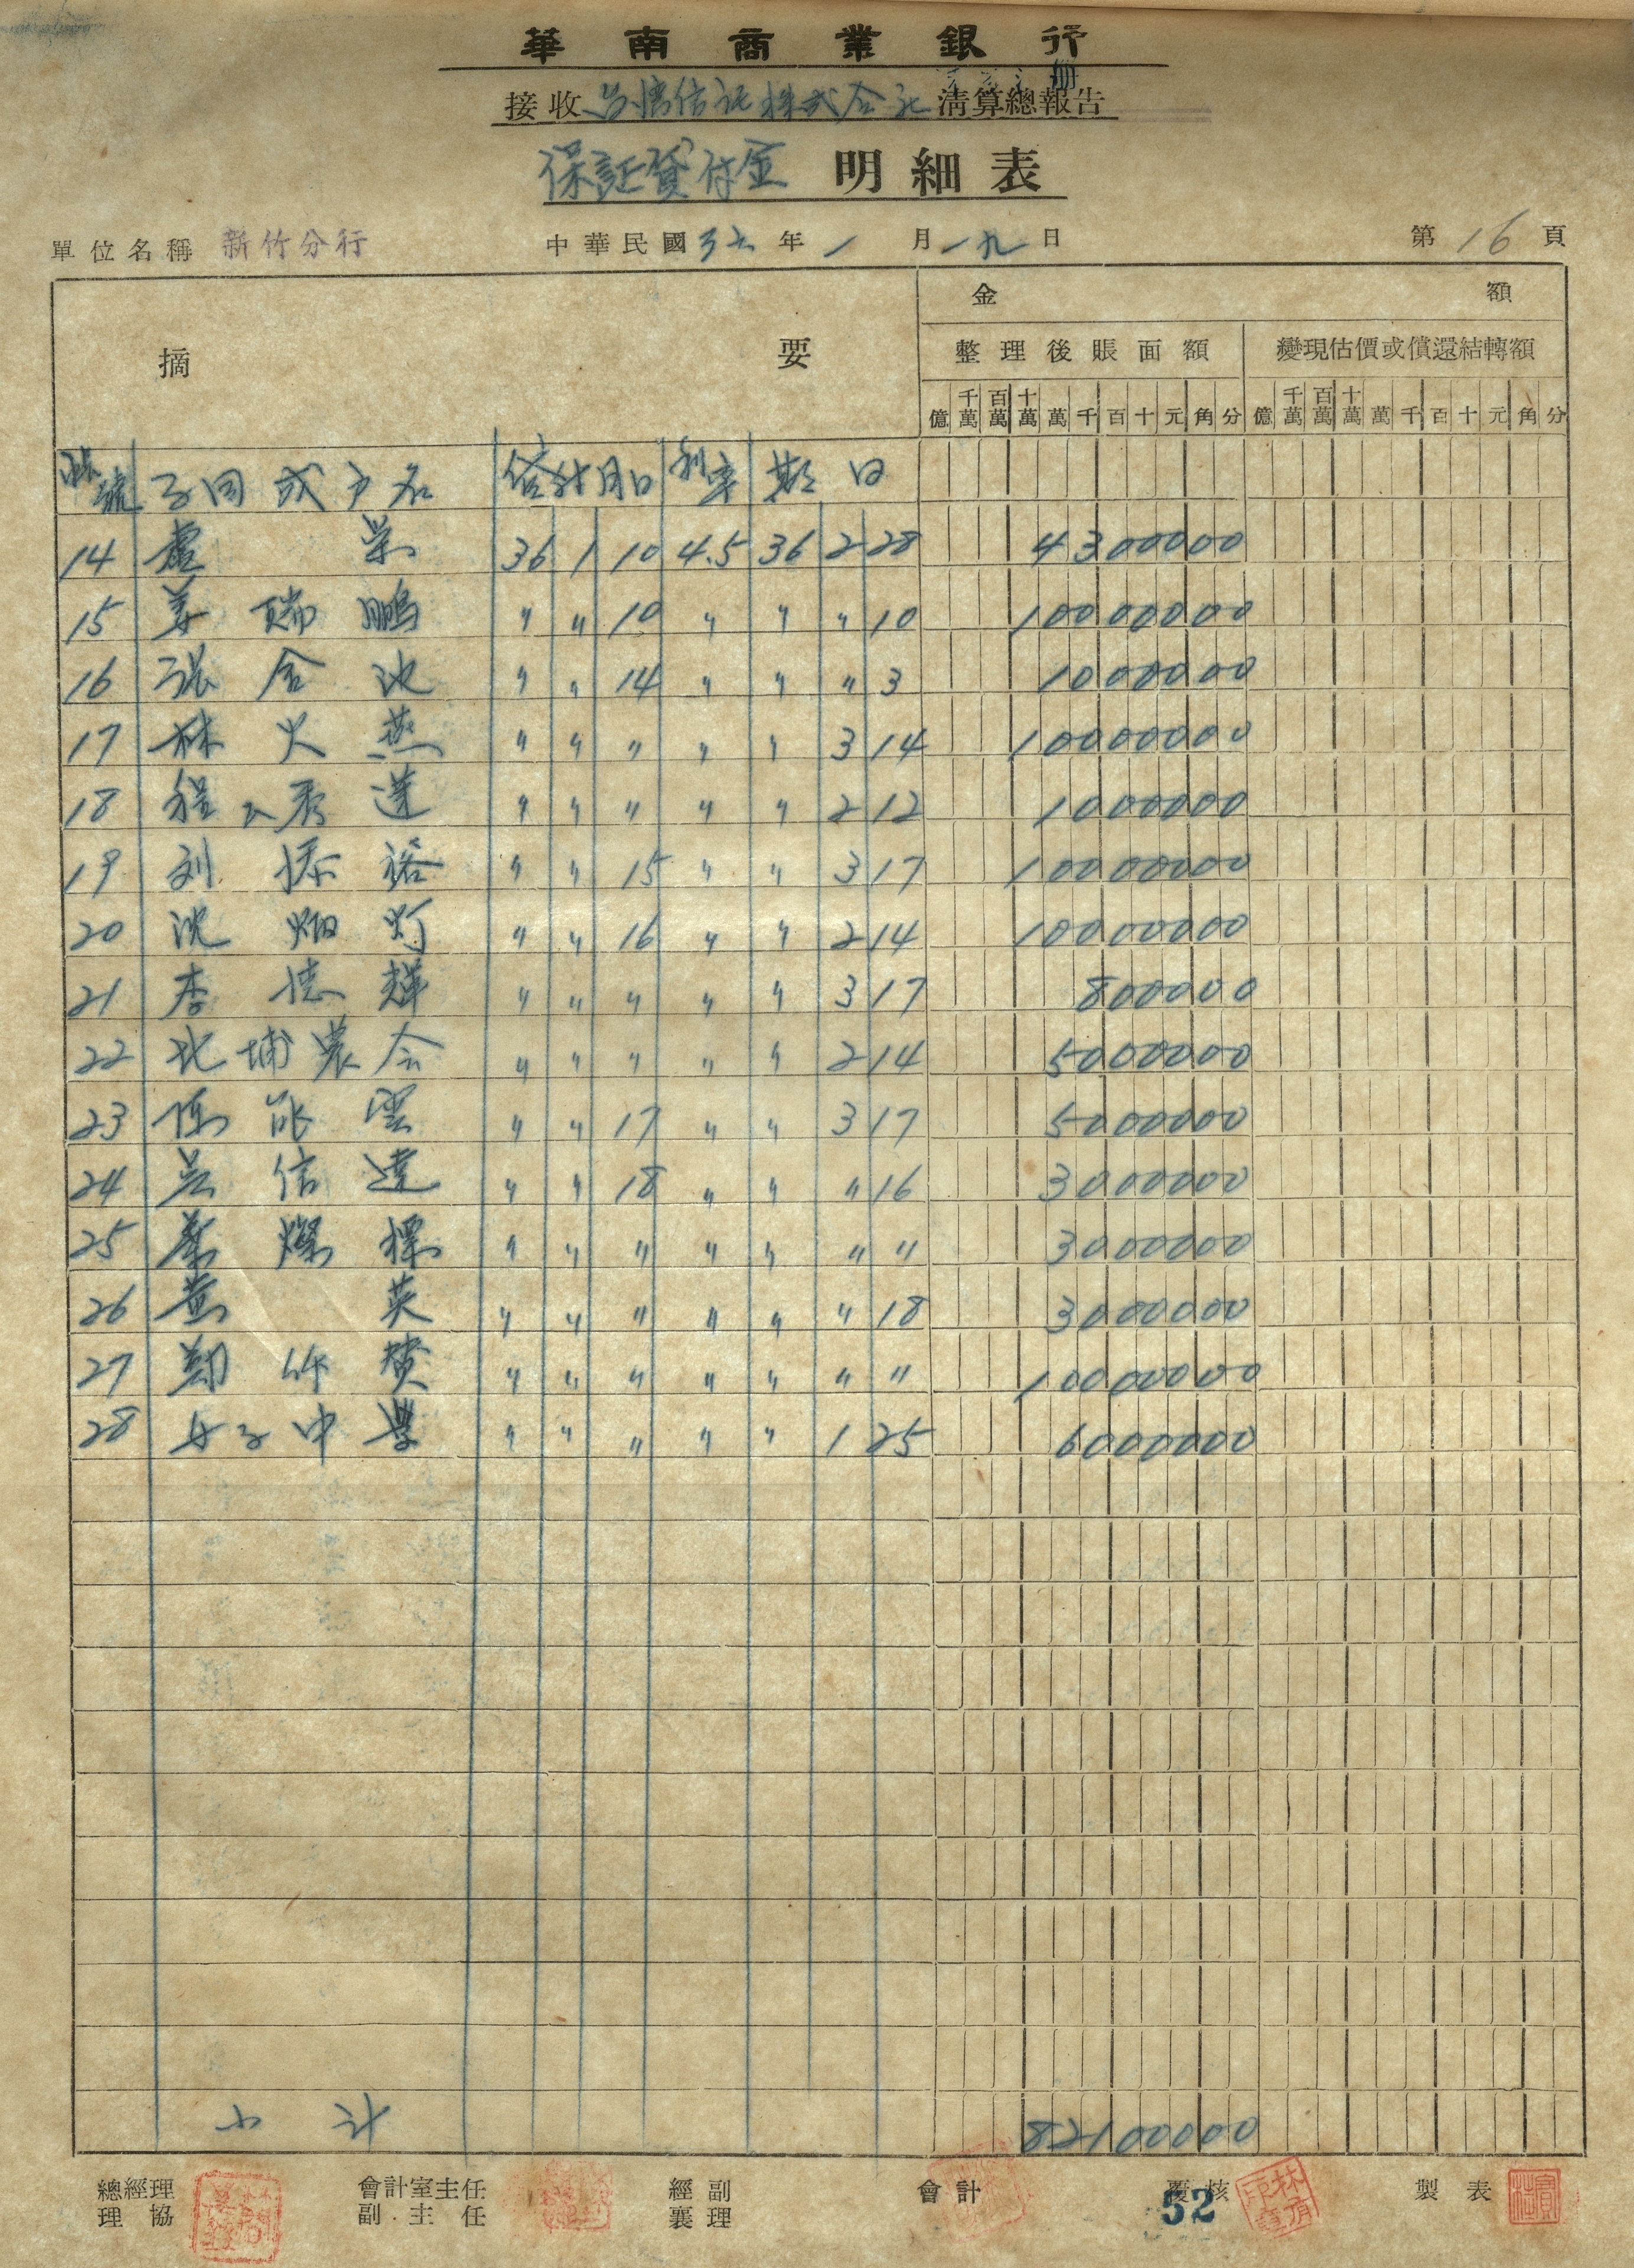 華南商業銀行
接收台湾信託株式会社清算總報告冊
保証貸付金 明細表
單位名稱 新竹分行 中華民國36年1月19日 第16頁
摘要 金額
整理後賬面額 變現估價或償還結轉額
億 千萬 百萬 十萬 萬 千 百 十 元 角 分 億 千萬 百萬 十萬 萬 千 百 十 元 角 分
號 子目或户名 貸付月日 利率 期日
14 盧 栄 36 1 10 4.5 36 2 28 4300000
15 姜瑞鵬 〃 〃 10 〃 〃 〃 10 10000000
16 張金池 〃 〃 14 〃 〃 〃 3 1000000
17 林火燕 〃 〃 〃 〃 〃 3 14 10000000
18 程 秀蓮 〃 〃 〃 〃 〃 2 12 1000000
19 刘添裕 〃 〃 15 〃 〃 3 17 10000000
20 沈炳灯 〃 〃 16 〃 〃 2 14 10000000
21 李德輝 〃 〃 〃 〃 〃 3 17 800000
22 北埔農会 〃 〃 〃 〃 〃 2 14 5000000
23 雲 〃 〃 17 〃 〃 3 17 5000000
24 吴信達 〃 〃 18 〃 〃 〃 16 3000000
25 葉燦標 〃 〃 〃 〃 〃 〃 〃 3000000
26 黄 英 〃 〃 〃 〃 〃 〃 18 3000000
27 鄭竹 〃 〃 〃 〃 〃 〃 〃 10000000
28 女子中學 〃 〃 〃 〃 〃 1 25 6000000
小計 82100000
總經理 會計室主任 經副 會計 覆核 製表
協理 副主任 襄理
52